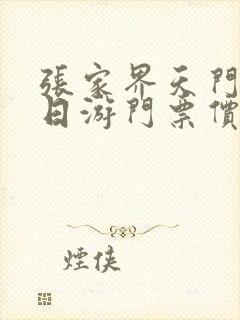 張家界天門
日游門票價
煙俠